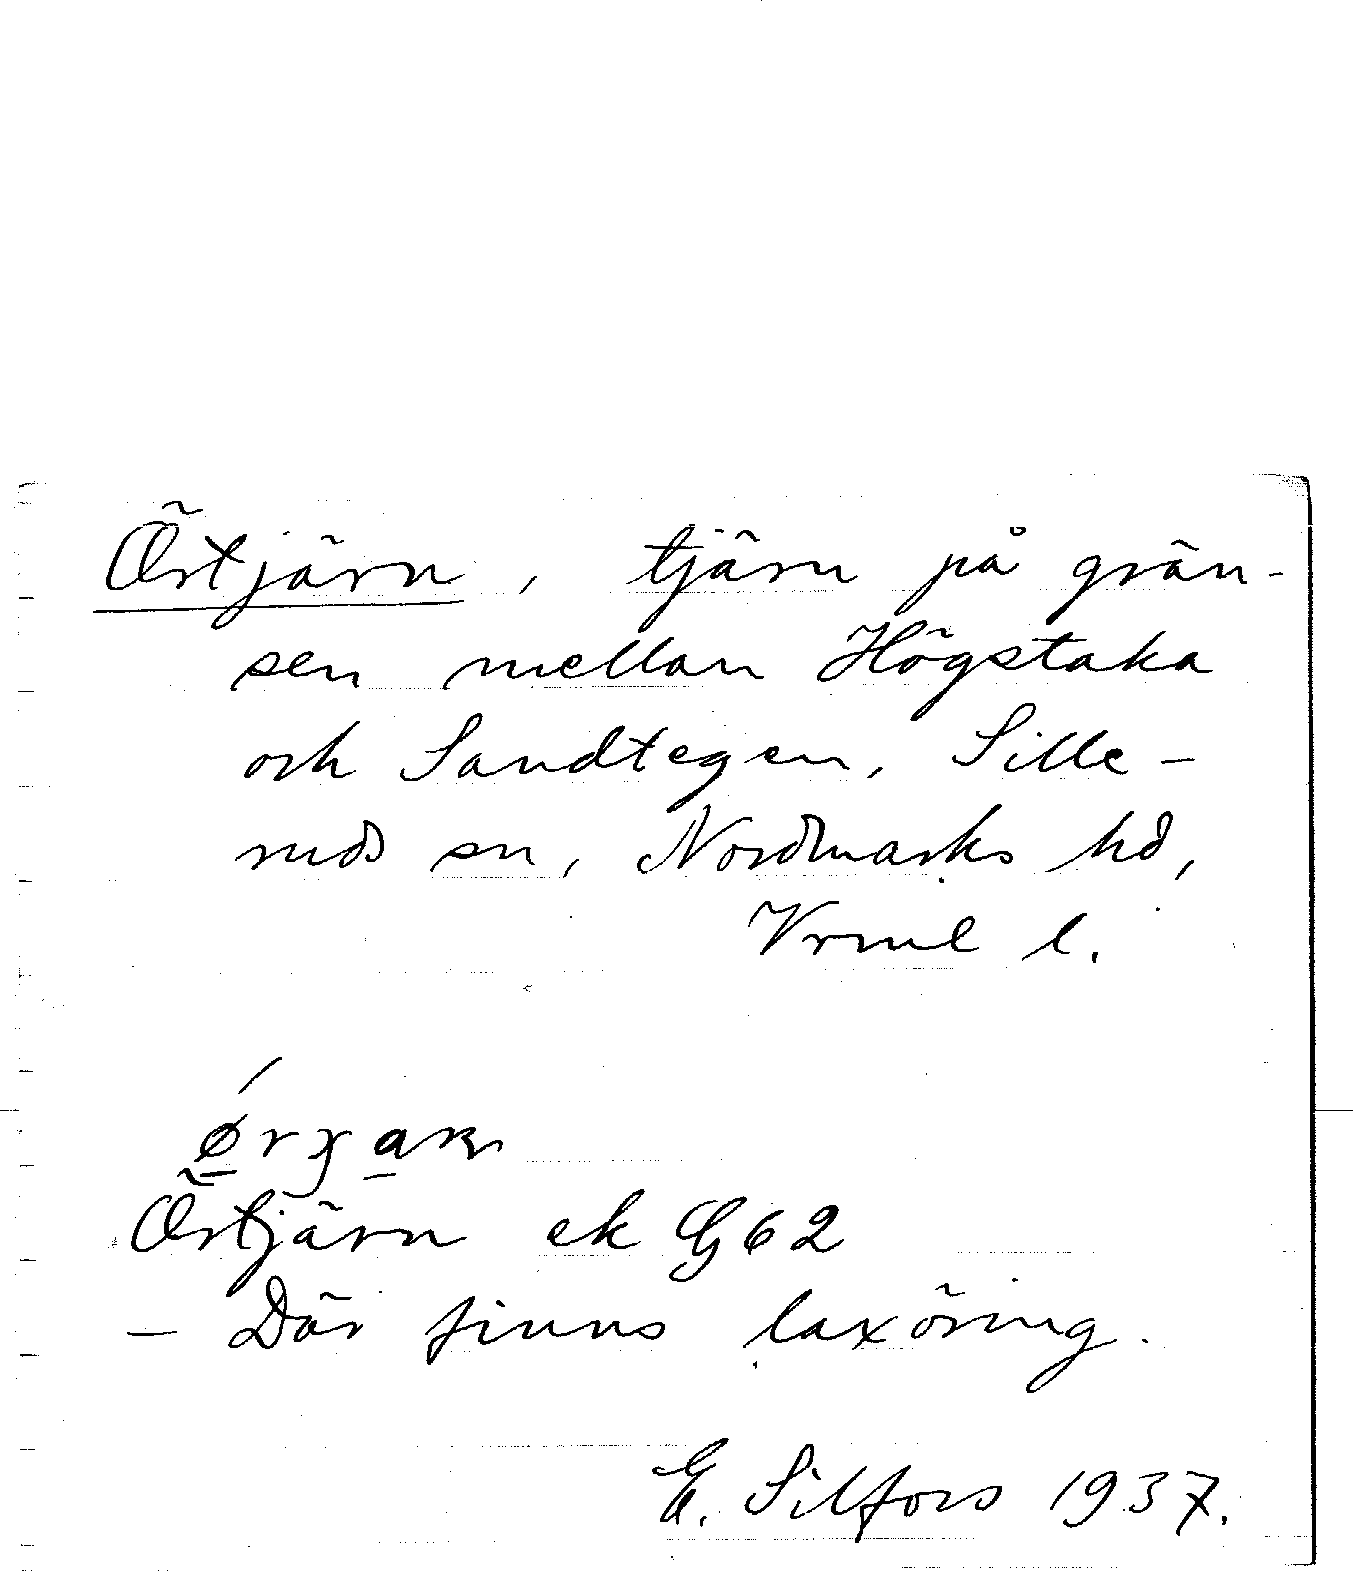 Örtjärn, tjärn på grän-
sen mellan Högstaka
och Sandtegen, Sille-
ruds sn, Nordmarks hd,
Vrml l.
Örtjärn ek G62
– Där finns laxöring.
E. Silfors 1937.